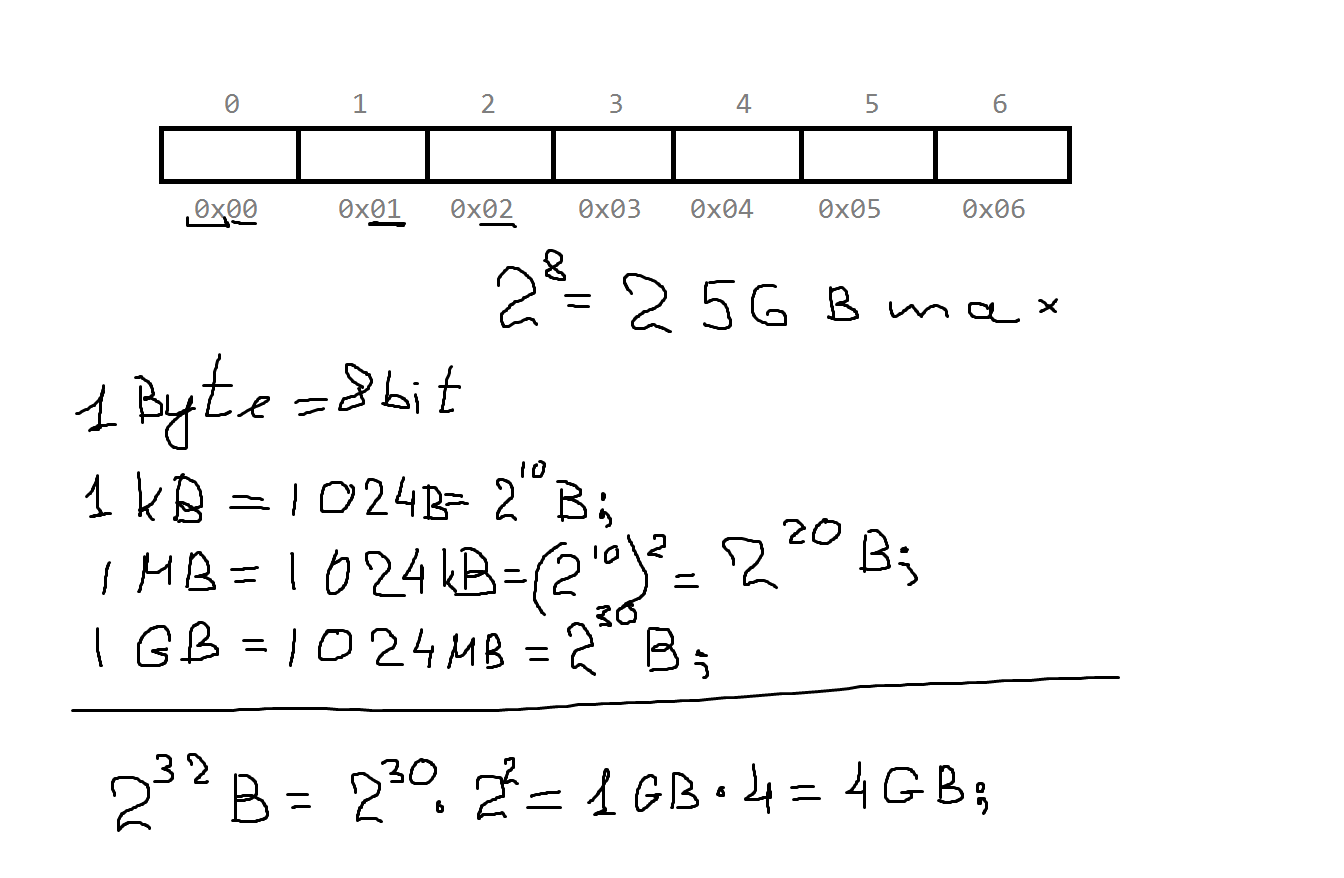 0 1 2 3 4 5 6
0x00 0x01 0x02 0x03 0x04 0x05 0x06
2⁸ = 256 B max
1 Byte = 8bit
1 kB = 1024B = 2¹⁰ B;
1 MB = 1024kB = (2¹⁰)² = 2²⁰ B;
1 GB = 1024MB = 2³⁰ B;
2³² B = 2³⁰ · 2² = 1 GB · 4 = 4GB;